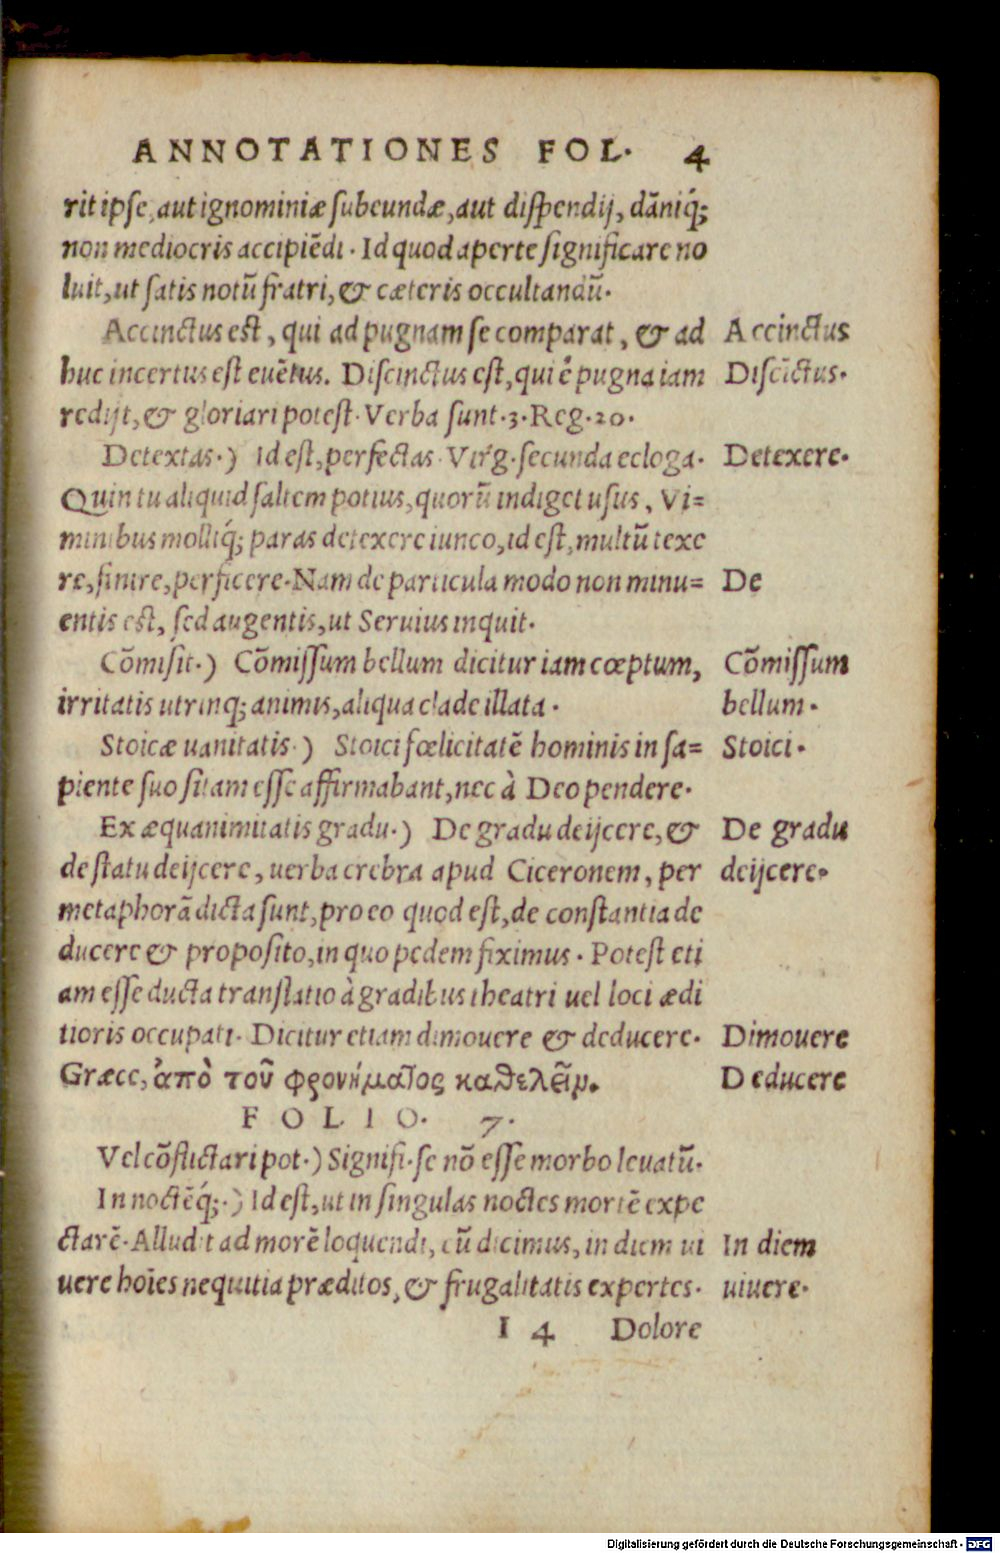 ANNOTATIONES FOL. 4
rit ipse, aut ignominiæ subeundæ, aut dispendij, dāniq́;
non mediocris accipiēdi. Id quod aperte significare no
luit, ut satis notū fratri, & cæteris occultandū.
Accinctus est, qui ad pugnam se comparat, & ad Accinctus
huc incertus est evētus. Discinctus est, qui ė pugna iam Discīctus.
redijt, & gloriari potest. Verba sunt. 3. Reg. 20.
Detextas.) Id est, perfectas. Virg. secunda ecloga. Detexere.
Quin tu aliquid saltem potius, quorū indiget usus, Vi=
minibus molliq́; paras detexere iunco, id est, multū texe
re, finire, perficere. Nam de particula modo non minu= De
entis est, sed augentis, ut Seruius inquit.
Cōmisit.) Cōmissum bellum dicitur iam cœptum, Cōmissum
irritatis utrinq; animis, aliqua clade illata. bellum.
Stoicæ uanitatis.) Stoici fœlicitatē hominis in sa= Stoici.
piente suo sitam esse affirmabant, nec à Deo pendere.
Ex æquanimitatis gradu.) De gradu deijcere, & De gradu
de statu deijcere, uerba crebra apud Ciceronem, per deijcere.
metaphorā dicta sunt, pro eo quod est, de constantia de
ducere & proposito, in quo pedem fiximus. Potest eti
am esse ducta translatio à gradibus theatri uel loci ædi
tioris occupati. Dicitur etiam dimouere & deducere. Dimouere
Græce, ἀπὸ τοῦ φρονήματος καθελεῖν. Deducere
FOLIO. 7.
Vel cōflictari pot.) Signifi. se nō esse morbo leuatū.
In noctēq́;.) Id est, ut in singulas noctes mortē expe
ctarē. Alludit ad morē loquendi, cū dicimus, in diem ui In diem
uere hoīes nequitia præditos, & frugalitatis expertes. uiuere.
I 4 Dolore
Digitalisierung gefördert durch die Deutsche Forschungsgemeinschaft - DFG